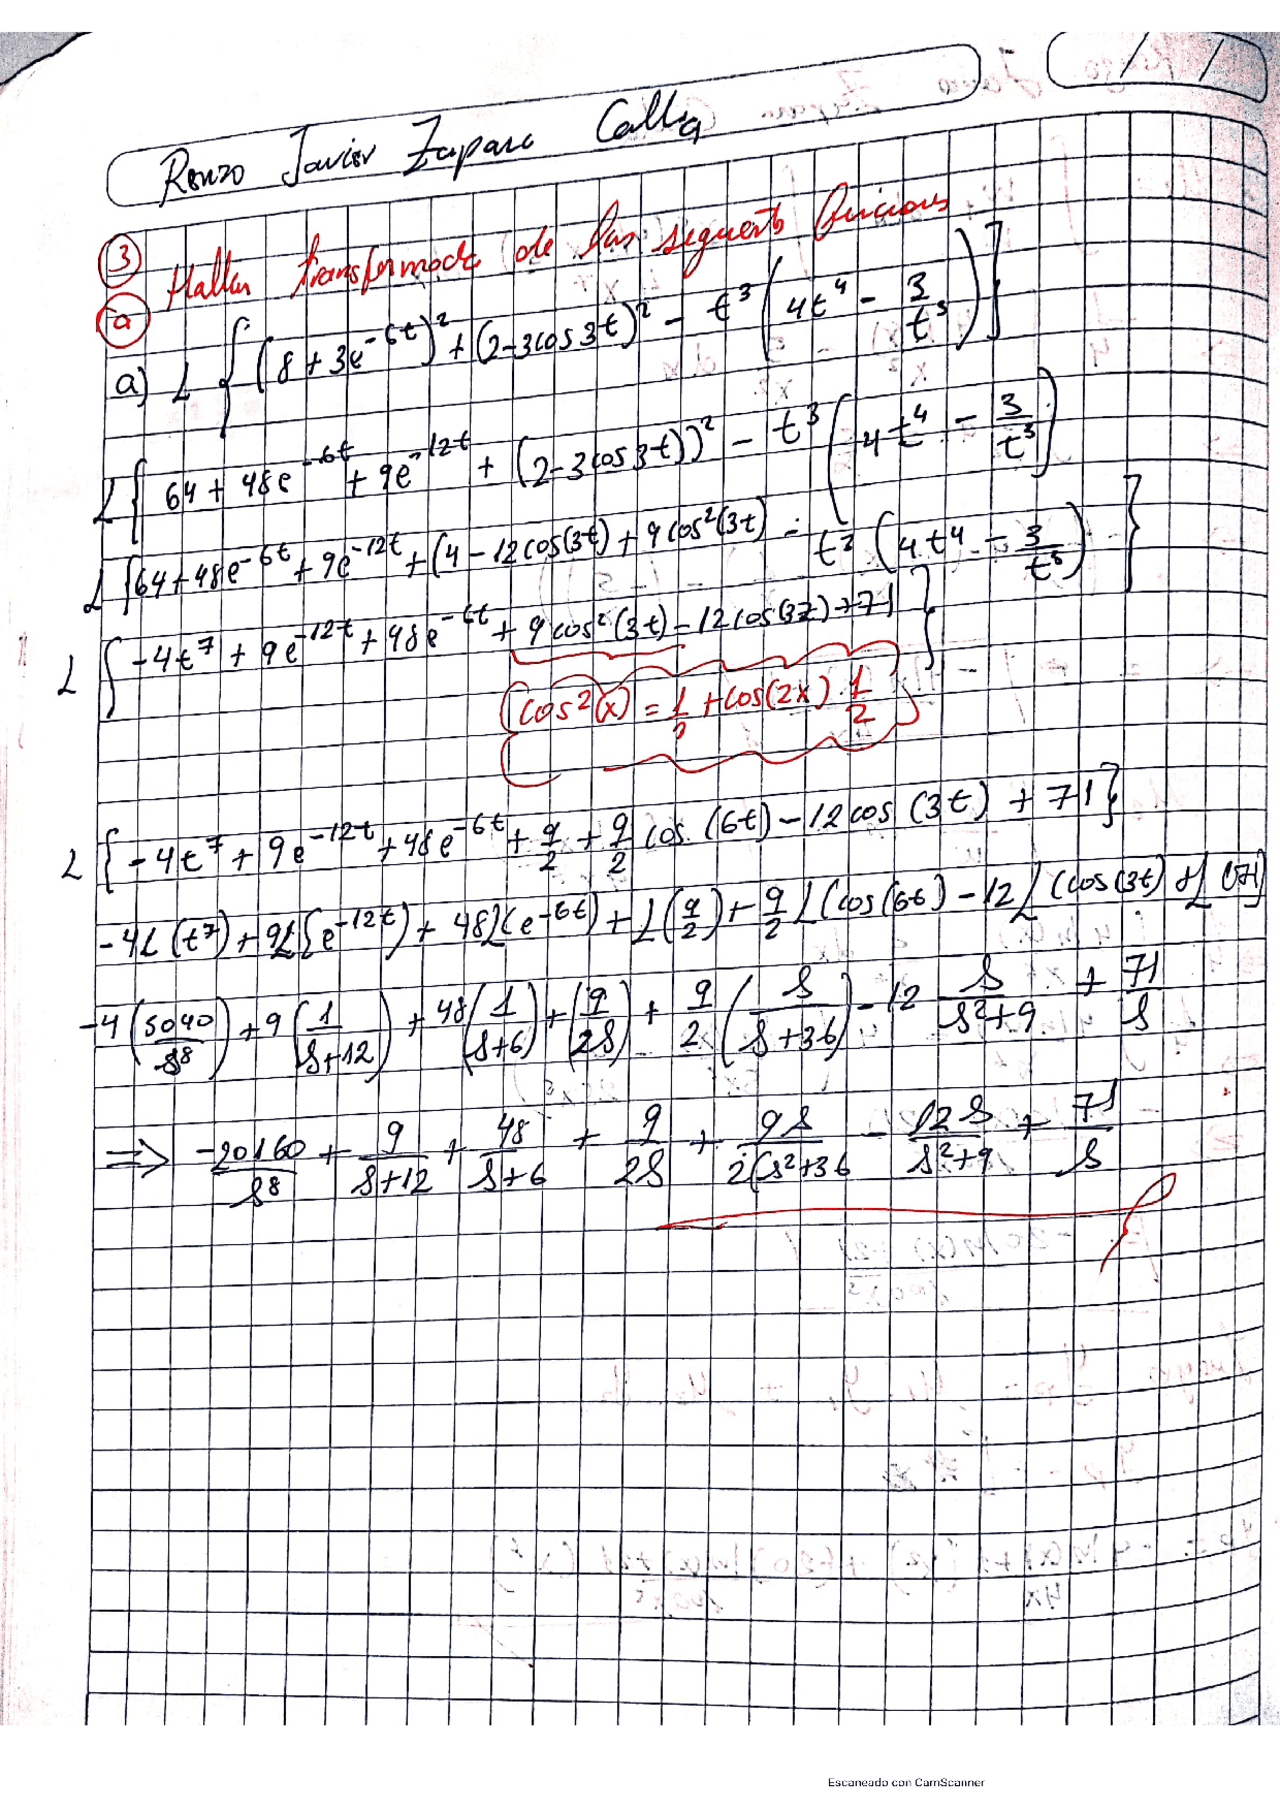 Renzo Javier Zapana Calla
③ Hallar transformada de las siguientes funciones
ⓐ
a) L { (8 + 3e^{-6t})^2 + (2-3cos3t)^2 - t^3 (4t^4 - 3/t^3) }
L { 64 + 48e^{-6t} + 9e^{-12t} + (2-3cos3t))^2 - t^3 (4t^4 - 3/t^3)
L {64+48e^{-6t} + 9e^{-12t} + (4-12cos(3t) + 9cos^2(3t) - t^3 (4t^4 - 3/t^3) }
L { -4t^7 + 9e^{-12t} + 48e^{-6t} + 9cos^2(3t) - 12cos(3t) + 71 }
(cos^2(x) = 1/2 + cos(2x) · 1/2)
L { -4t^7 + 9e^{-12t} + 48e^{-6t} + 9/2 + 9/2 cos (6t) - 12cos (3t) + 71 }
-4L (t^7) + 9L{e^{-12t}) + 48L(e^{-6t}) + L(9/2) + 9/2 L(cos(6t) - 12L (cos(3t) + L (71)
-4 (5040/s^8) + 9 (1/(s+12)) + 48 (1/(s+6)) + (9/2s) + 9/2 (s/(s+36)) - 12 s/(s^2+9) + 71/s
=> -20160/s^8 + 9/(s+12) + 48/(s+6) + 9/2s + 9s/2(s^2+36 - 12s/(s^2+9) + 71/s
Escaneado con CamScanner